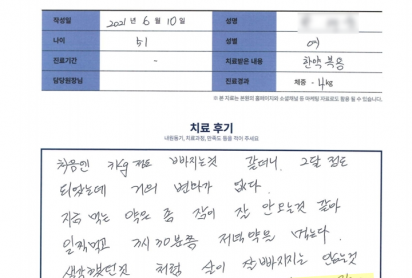 작성일 2021 년 6 월 10 일 성명
나이 51 성별 여
진료기간 - 치료받은 내용 한약 복용
담당원장님 진료경과 체중 -4kg
※ 본 자료는 본원의 홈페이지와 소셜채널 등 마케팅 자료로도 활용 될 수 있습니다.
치료 후기
내원동기, 치료과정, 만족도 등을 적어 주세요
처음엔 3kg 정도 빠지는것 같더니. 2달 정도
되었는데 거의 변화가 없다.
지금 먹는 약은 좀 잠이 잘 안오는것 같아
일찍먹고 7시 30분쯤 저녁약을 먹는다.
생각했던것 처럼 살이 잘 빠지지는 않는것